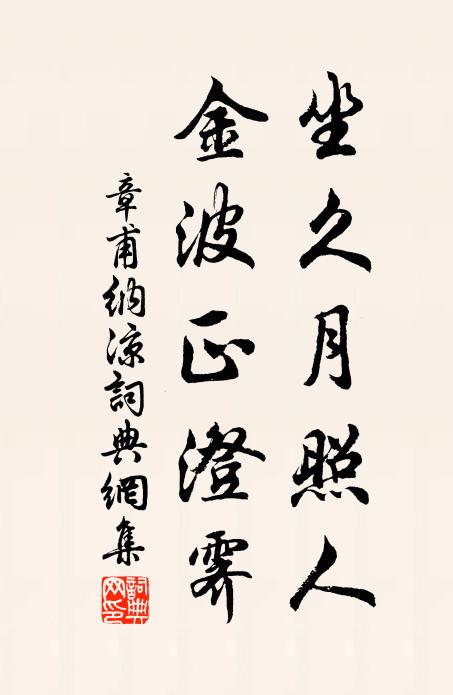 坐久月照人
金波正澄霁
章甫納凉詞典網集
詞典网印